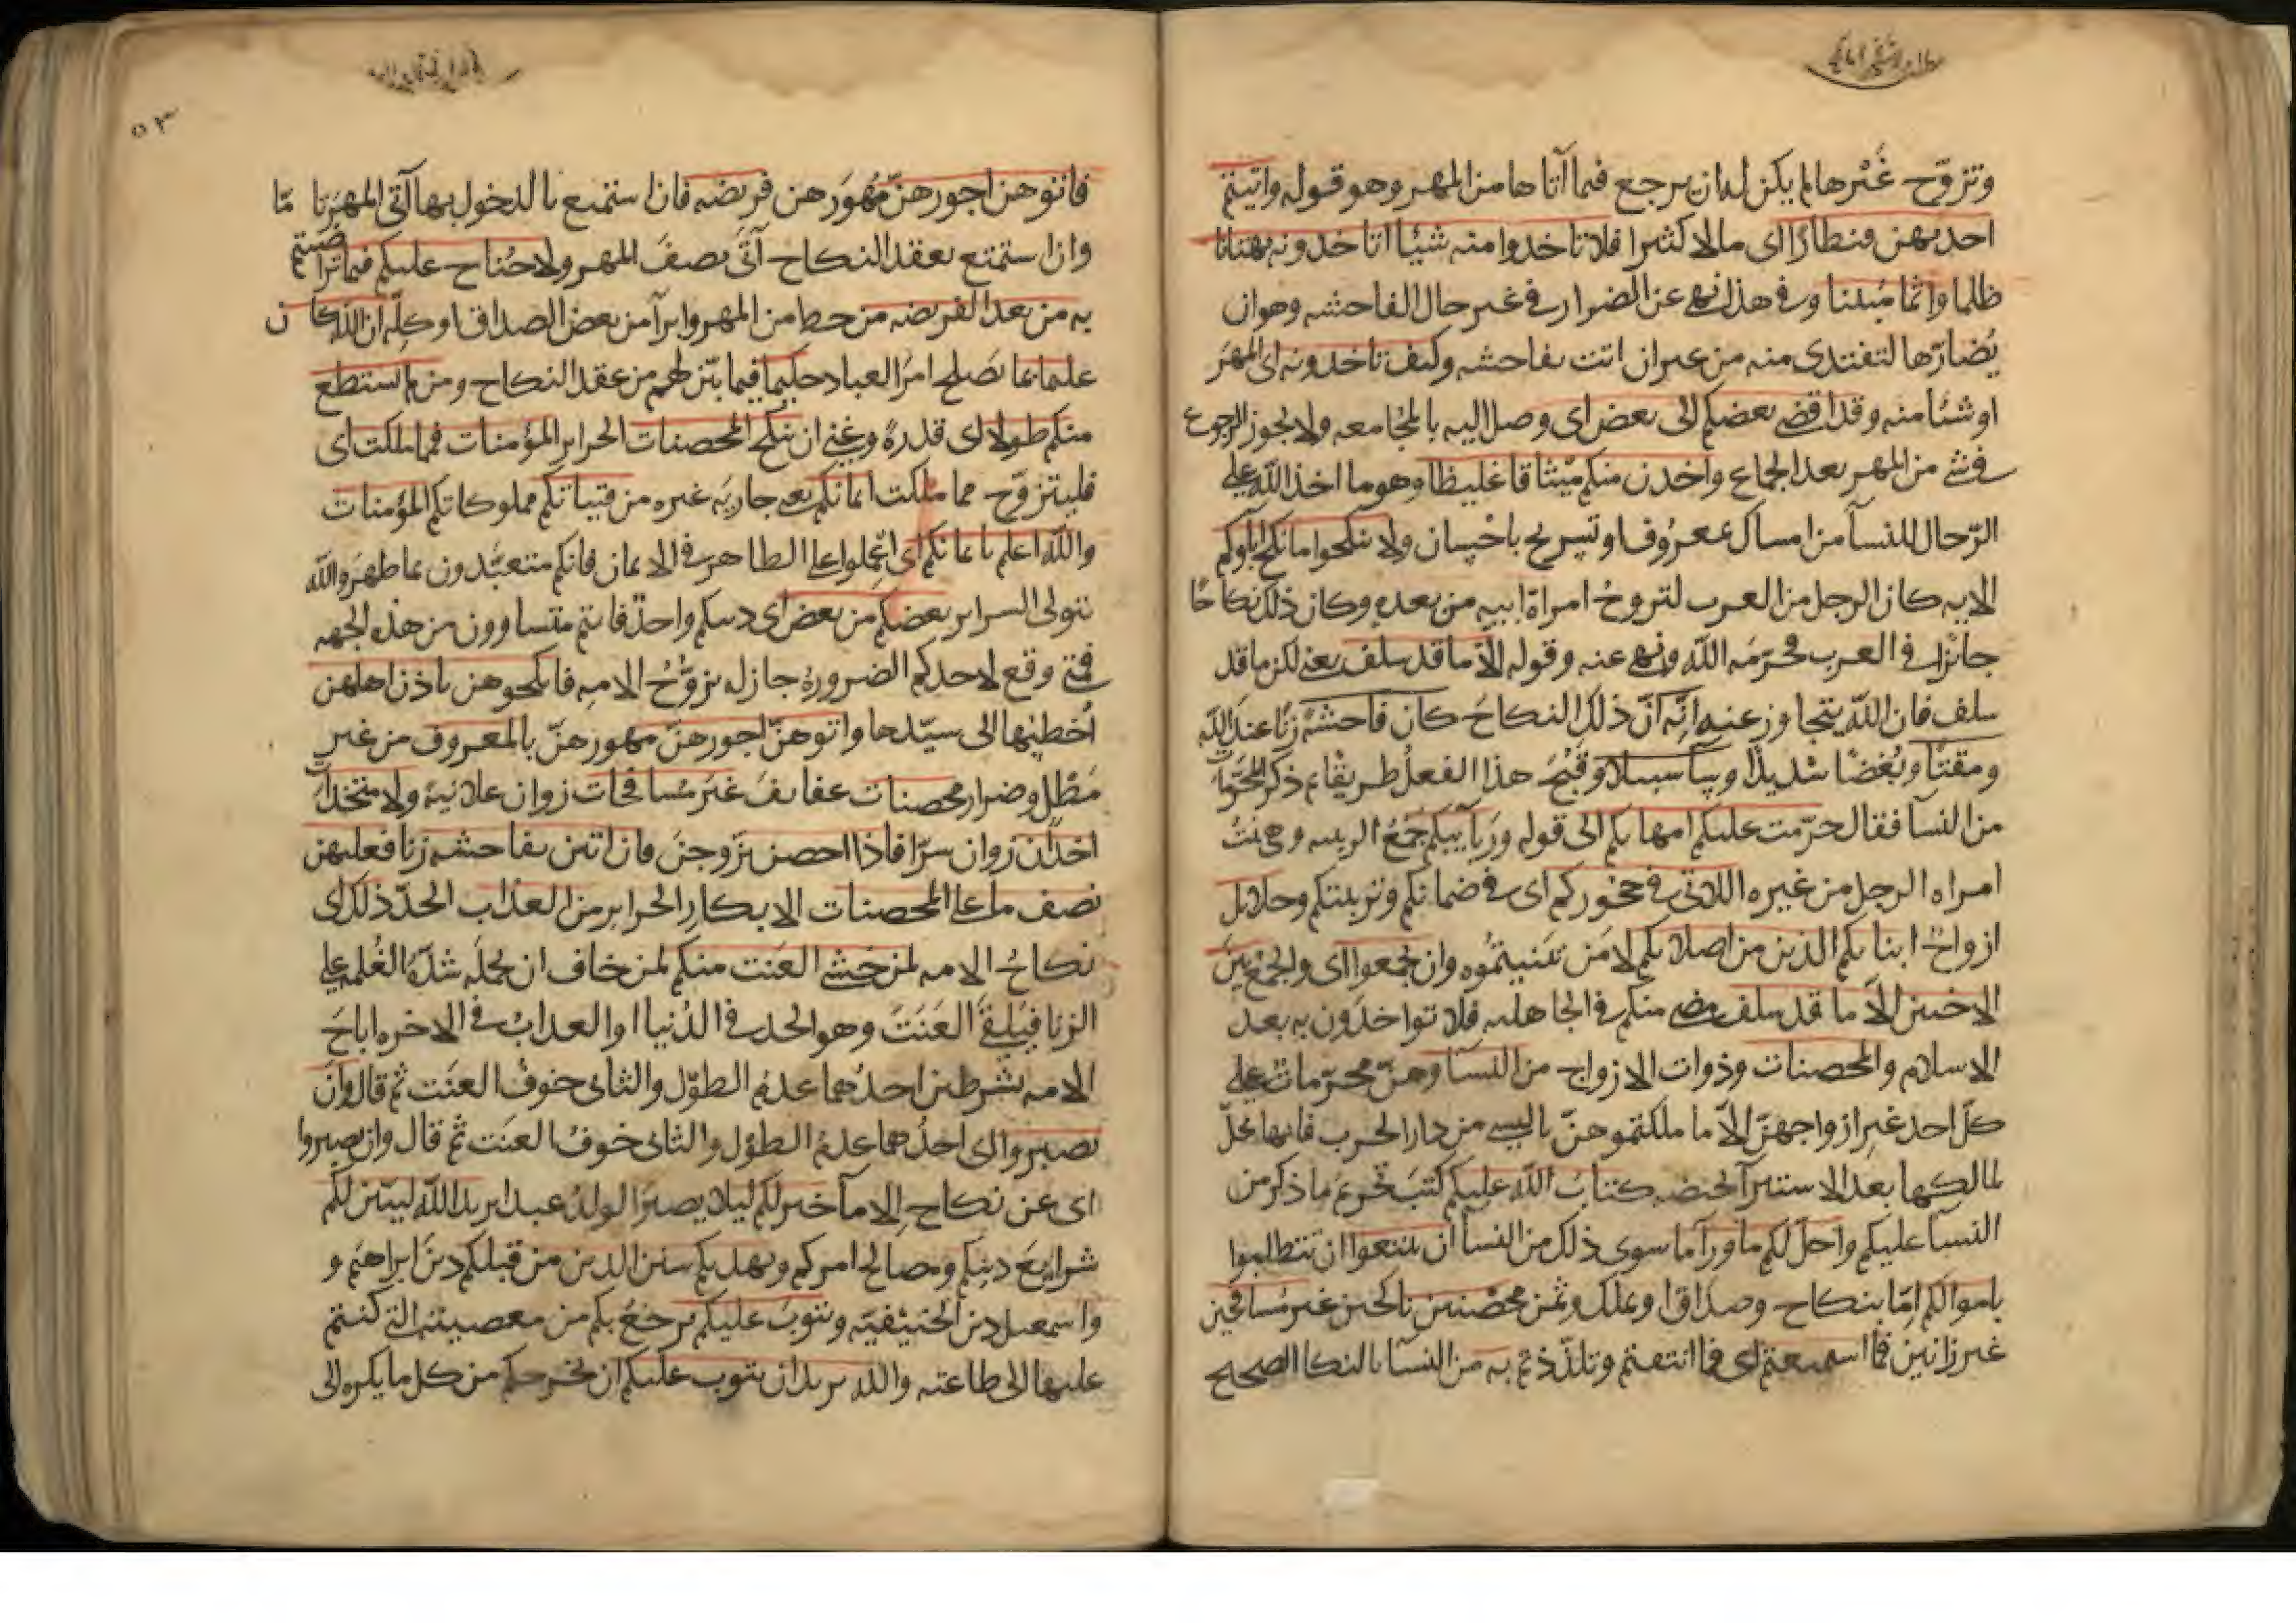 وتزوّج غَيْرها لم يكن له ان يرجع فيما آتاها من المهر وهو قوله واتيتم
احديهن قنطارًا اى مالا كثيرا فلا تاخذوا منه شيئا اتاخذونه بهتانا
ظلما واثما مُبينا وفي هذا نهي عن الضرار في غير حال الفاحشه وهو ان
يُضارّها لتفتدى منه من غير ان اتت بفاحشه وكيف تاخذونه اى المهرَ
او شيئا منه وقد افضى بعضكم الى بعض اى وصل اليه بالمجُامعه ولا يجوز الرجوع
في شي من المهر بعد الجماع واخذن منكم ميْثاقا غليظا وهو ما اخذ اللّه على
الرّجال للنسآ من امساك بمعرُوف او تسريح باحْسان ولا تنكحوا ما نكح اباؤكم
الايه كان الرجل من العرب يتزوجُ امراة ابيه من بعده وكان ذلك نكاحًا
جائزا في العرب فحرّمَه اللّه ونهى عنه وقوله الّا ما قد سلف يعنى لكن ما قد
سلف فان اللّه يتجاوز عنه انّه انّ ذلك النكاحَ كان فاحشةً زنًا عند اللّه
ومقتًا وبُغضًا شديدًا وسآ سبيلا وقَبُحَ هذا الفعلُ طريقًا ثم ذكر المحرّمات
من النسآ فقال حرّمت عليكم امهاتكم الى قوله ورَبآيبكم جَمْعُ الربيبه وهى بنتُ
امراه الرجل من غيره اللاتى في حجُوركم اى في ضمانكم وتربيتكم وحلايل
ازواجُ ابنايكم الذين من اصلابكم لا مَن تبنيتمُوه وان تجمعوا اى والجمْع بَين
الاختين الّا ما قد سلف مضى منكم في الجاهليه فلا تواخذُون به بعد
الاسلام والمحصنات وذوات الازواج من النسآ وهنّ محرّمات على
كلّ احد غير ازواجهنّ الّا ما ملكتموهنّ بالسبي من دار الحرب فانها تحلّ
لمالكها بعد الاستبرآ بحيضه كتابَ اللّه عليكم كتبَ تحريمَ ما ذكر من
النسآ عليكم واحل لكم ما ورآ ما سوى ذلك من النسآ ان تبتغوا ان تتطلبوا
باموالكم امّا بنكاح وصداق او بملك وثمن محْصنين ناكحين غير مُسافحين
غير زانين فما استمتعتم اى فما انتفعتم وتلذّذتم به من النسآ بالنكاح الصحيح
٥٣
فاتوهن اجورهنّ مُهُورَهن فريضه فان استمتع بالدخول بها آتى المهرَ تامّا
وان استمتع بعقد النكاح آتَى نصفَ المهر ولا جُناح عليكم فيما تراضيتم
به من بعد الفريضه من حط من المهر وابرآ من بعض الصداق او كلّه ان اللّه كان
عليما بما يَصلح امرَ العباد حكيما فيما بيّن لهم من عقد النكاح ومن لم يستطع
منكم طولا اى قدرةً وغِنى ان ينكح المحصنات الحراير المؤمنات فمما ملكت اى
فليتزوّج مما ملكت ايمانكم يعنى جاريَة غيره من فتياتكم مملوكاتكم المؤمنات
واللّه اعلم بايمانكم اى اعملوا على الظاهر في الايمان فانكم متعبّدون بما ظهرَ واللّه
يتولى السراير بعضكم من بعض اى دينكم واحدٌ فانتم متساوون من هذه الجهه
فمتى وقع لاحدكم الضرورة جاز له تزوّجُ الامه فانكحوهن باذن اهلهن
اُخطبُها الى سيّدها واتوهنّ اجورهنّ مهورهنّ بالمعروف من غير
مَطْل وضرار محصنات عفايفَ غيرَ مُسافحات زوان علانيةً ولا متخذات
اخدان زوان سرّا فاذا احصن تزّوجنَ فان اتين بفاحشه زنا فعليهن
نصف ما على المحصنات الابكار الحراير من العذاب الحدّ ذلك اى
نكاحُ الامه لمن خشى العَنَت منكم لمن خاف ان تحملَه شدّةُ الغُلمه على
الزنا فيَلقى العَنَتَ وهو الحد في الدُنيا او العذابُ في الاخره اباحَ
الامه بشرطين احدُهما عدمُ الطوْل والثانى خوفُ العنَت ثم قال وان
تصبروا اى احدُهما عدمُ الطَوْل والثانى خوفُ العنَت ثم قال وان تصبروا
اى عن نكاح الامآ خير لكم ليلا يصيرَ الولدُ عبدا يريد اللّه ليبيّن لكم
شرايعَ دينكم ومصالح امركم ويهديكم سنن الذين من قبلكم دينَ ابراهيم و
واسمعيل دين الحنيْفيّه ويتوبَ عليكم يرجعُ بكم من معصيته التى كنتم
عليها الى طاعته واللّه يريد ان يتوب عليكم ان يخرجكم من كل ما يكره الى